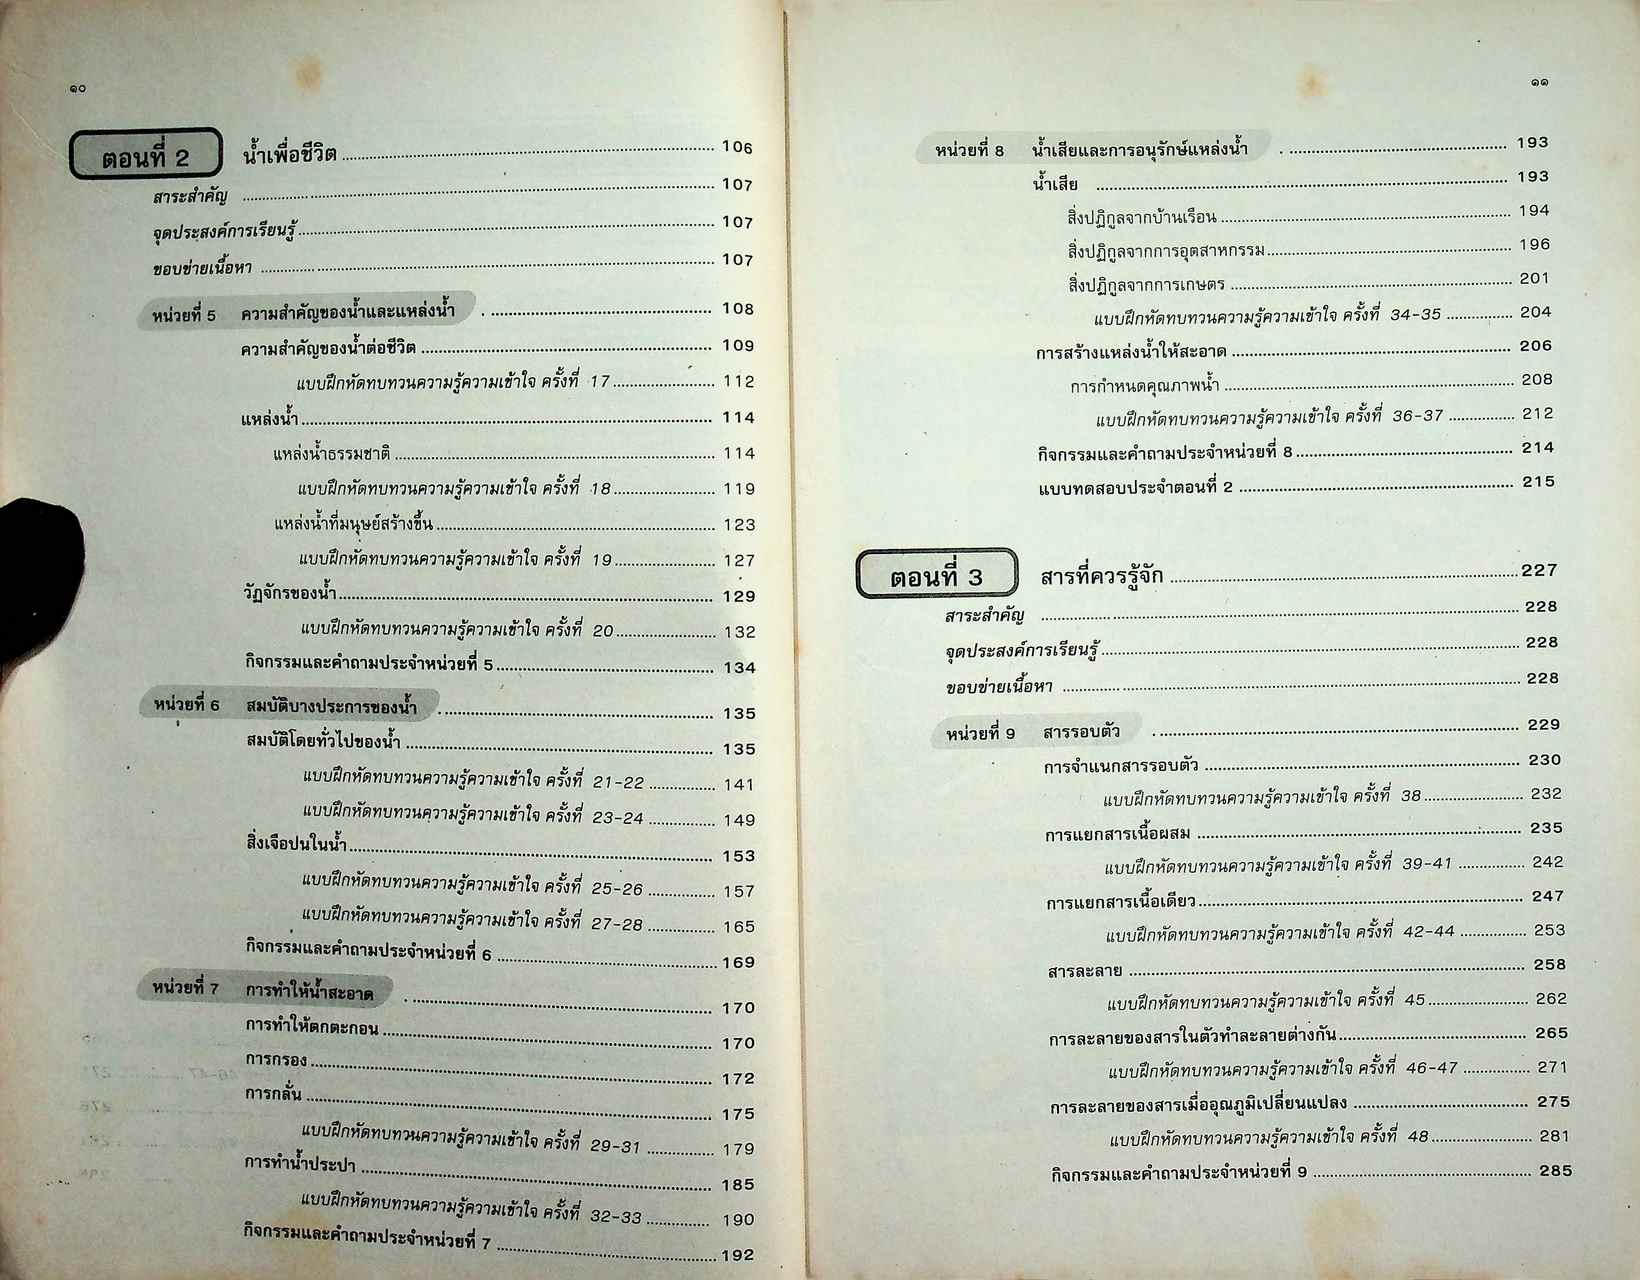 ๑๐
ตอนที่ 2 น้ำเพื่อชีวิต 106
สาระสำคัญ 107
จุดประสงค์การเรียนรู้ 107
ขอบข่ายเนื้อหา 107
หน่วยที่ 5 ความสำคัญของน้ำและแหล่งน้ำ 108
ความสำคัญของน้ำต่อชีวิต 109
แบบฝึกหัดทบทวนความรู้ความเข้าใจ ครั้งที่ 17 112
แหล่งน้ำ 114
แหล่งน้ำธรรมชาติ 114
แบบฝึกหัดทบทวนความรู้ความเข้าใจ ครั้งที่ 18 119
แหล่งน้ำที่มนุษย์สร้างขึ้น 123
แบบฝึกหัดทบทวนความรู้ความเข้าใจ ครั้งที่ 19 127
วัฏจักรของน้ำ 129
แบบฝึกหัดทบทวนความรู้ความเข้าใจ ครั้งที่ 20 132
กิจกรรมและคำถามประจำหน่วยที่ 5 134
หน่วยที่ 6 สมบัติบางประการของน้ำ 135
สมบัติโดยทั่วไปของน้ำ 135
แบบฝึกหัดทบทวนความรู้ความเข้าใจ ครั้งที่ 21-22 141
แบบฝึกหัดทบทวนความรู้ความเข้าใจ ครั้งที่ 23-24 149
สิ่งเจือปนในน้ำ 153
แบบฝึกหัดทบทวนความรู้ความเข้าใจ ครั้งที่ 25-26 157
แบบฝึกหัดทบทวนความรู้ความเข้าใจ ครั้งที่ 27-28 165
กิจกรรมและคำถามประจำหน่วยที่ 6 169
หน่วยที่ 7 การทำให้น้ำสะอาด 170
การทำให้ตกตะกอน 170
การกรอง 172
การกลั่น 175
แบบฝึกหัดทบทวนความรู้ความเข้าใจ ครั้งที่ 29-31 179
การทำน้ำประปา 185
แบบฝึกหัดทบทวนความรู้ความเข้าใจ ครั้งที่ 32-33 190
กิจกรรมและคำถามประจำหน่วยที่ 7 192
๑๑
หน่วยที่ 8 น้ำเสียและการอนุรักษ์แหล่งน้ำ 193
น้ำเสีย 193
สิ่งปฏิกูลจากบ้านเรือน 194
สิ่งปฏิกูลจากการอุตสาหกรรม 196
สิ่งปฏิกูลจากการเกษตร 201
แบบฝึกหัดทบทวนความรู้ความเข้าใจ ครั้งที่ 34-35 204
การสร้างแหล่งน้ำให้สะอาด 206
การกำหนดคุณภาพน้ำ 208
แบบฝึกหัดทบทวนความรู้ความเข้าใจ ครั้งที่ 36-37 212
กิจกรรมและคำถามประจำหน่วยที่ 8 214
แบบทดสอบประจำตอนที่ 2 215
ตอนที่ 3 สารที่ควรรู้จัก 227
สาระสำคัญ 228
จุดประสงค์การเรียนรู้ 228
ขอบข่ายเนื้อหา 228
หน่วยที่ 9 สารรอบตัว 229
การจำแนกสารรอบตัว 230
แบบฝึกหัดทบทวนความรู้ความเข้าใจ ครั้งที่ 38 232
การแยกสารเนื้อผสม 235
แบบฝึกหัดทบทวนความรู้ความเข้าใจ ครั้งที่ 39-41 242
การแยกสารเนื้อเดียว 247
แบบฝึกหัดทบทวนความรู้ความเข้าใจ ครั้งที่ 42-44 253
สารละลาย 258
แบบฝึกหัดทบทวนความรู้ความเข้าใจ ครั้งที่ 45 262
การละลายของสารในตัวทำละลายต่างกัน 265
แบบฝึกหัดทบทวนความรู้ความเข้าใจ ครั้งที่ 46-47 271
การละลายของสารเมื่ออุณภูมิเปลี่ยนแปลง 275
แบบฝึกหัดทบทวนความรู้ความเข้าใจ ครั้งที่ 48 281
กิจกรรมและคำถามประจำหน่วยที่ 9 285